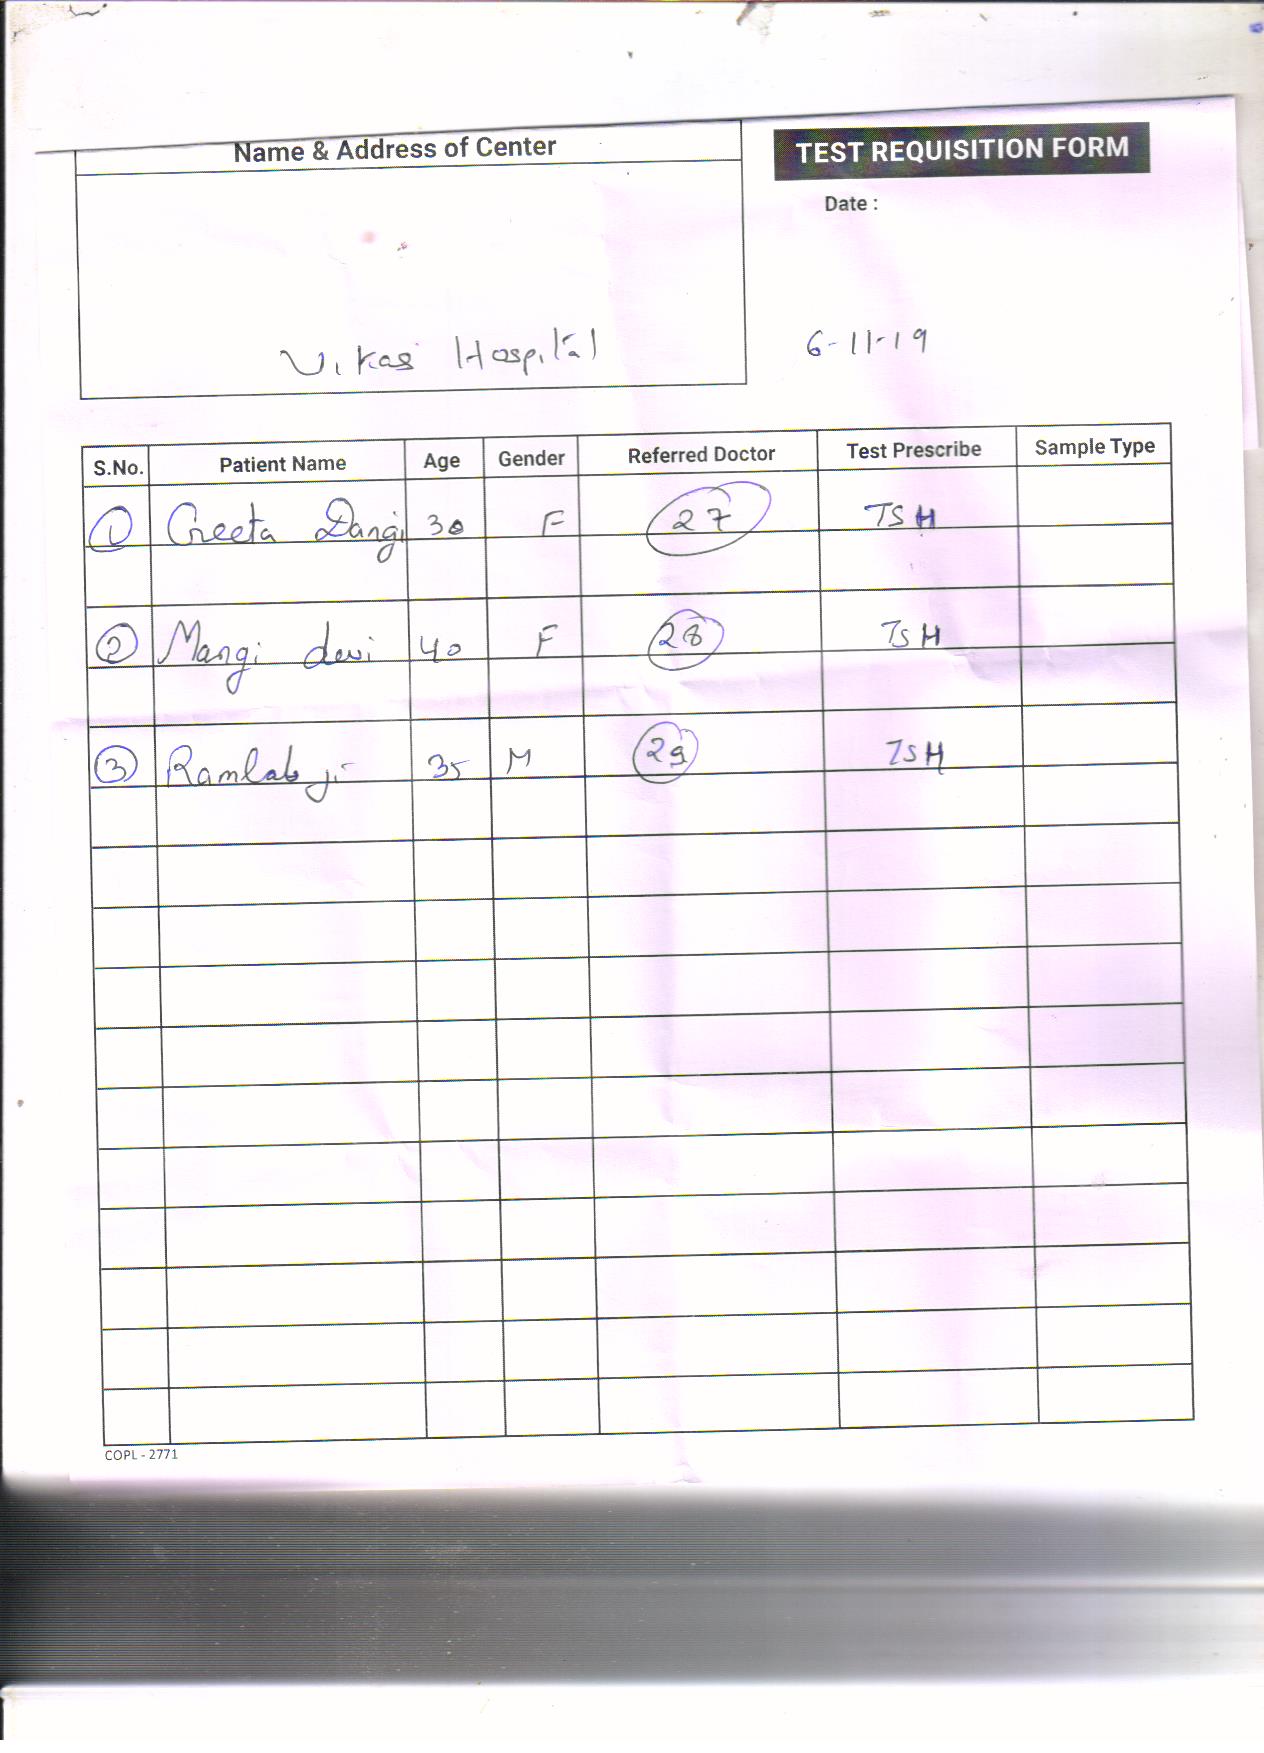 Name & Address of Center
TEST REQUISITION FORM
Date :
Vikas Hospital
6-11-19
S.No. Patient Name Age Gender Referred Doctor Test Prescribe Sample Type
1 Geeta Dangi 30 F 27 TSH
2 Mangi devi 40 F 28 TSH
3 ji 35 M 29 TSH
COPL - 2771